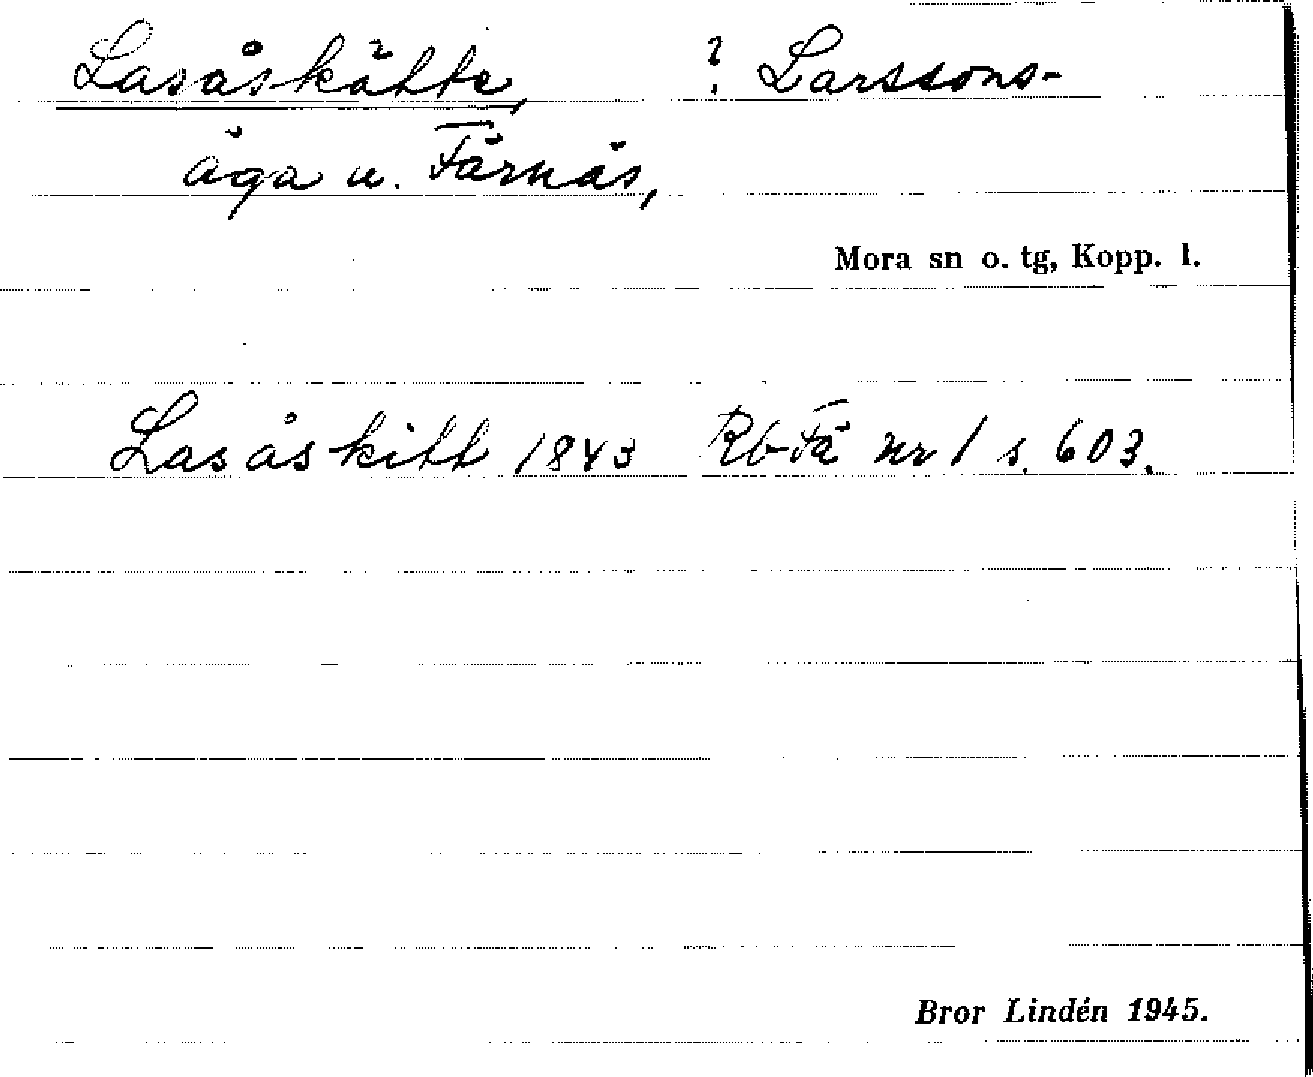 Lasåskätte, ? Larssons-
äga u. Färnäs,
Mora sn o. tg, Kopp. l.
Lasåskitt 1843 Rb-Fä nr 1 s. 603.
Bror Lindén 1945.